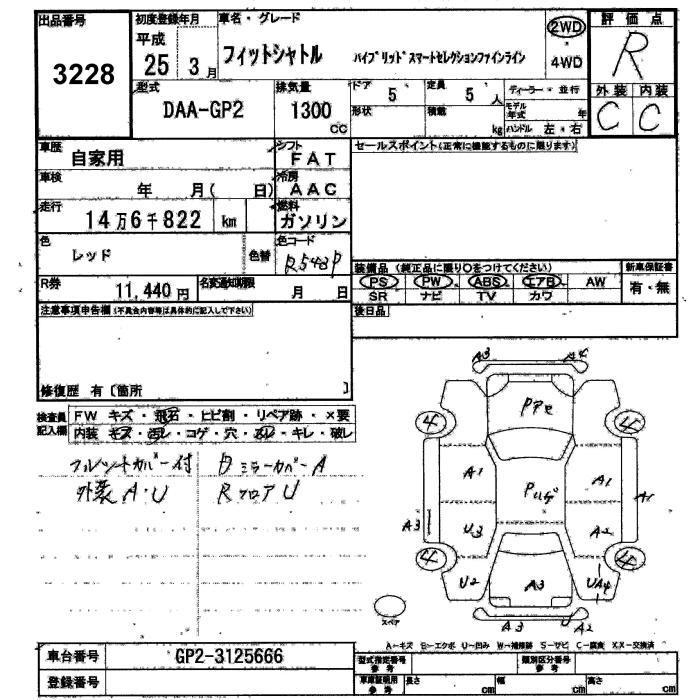 出品番号 初度登録年月 車名・グレード 2WD 評価点
3228 平成 25 3月 フィットシャトル ハイブリッドスマートセレクションファインライン 4WD R
型式 排気量 ドア 5 定員 5人 ディーラー・並行 外装 内装
DAA-GP2 1300cc 形状 積載 kg モデル年式 年 ハンドル 左・右 C C
車歴 自家用 シフト FAT セールスポイント(正常に機能するものに限ります)
車検 年 月( 日) 冷房 AAC
走行 14万6千822 km 燃料 ガソリン
色 レッド 色替 色コード R543P
装備品(純正品に限り○をつけてください) 新車保証書
R券 11,440円 名変通知期限 月 日 PS PW ABS エアB AW 有・無
SR ナビ TV カワ
注意事項申告欄(不具合内容等は具体的に記入して下さい) 後日品
修復歴 有〔箇所 〕
検査員記入欄 FW キズ・飛石・ヒビ割・リペア跡・×要
内装 キズ・汚レ・コゲ・穴・スレ・キレ・破レ
フロントカバー付 ミラーカバーA
外装A・U RフロアU
A3 A4
Pアセ
4 4
A1 A1 A1
A3 U3 A2
4 4
U2 A3 UA4
A3 A2
スペア
A-キズ E-エクボ U-凹み W-補修跡 S-サビ C-腐食 XX-交換済
車台番号 GP2-3125666 型式指定番号 参考 類別区分番号 参考
登録番号 車庫証明用 参考 長さ cm 幅 cm 高さ cm